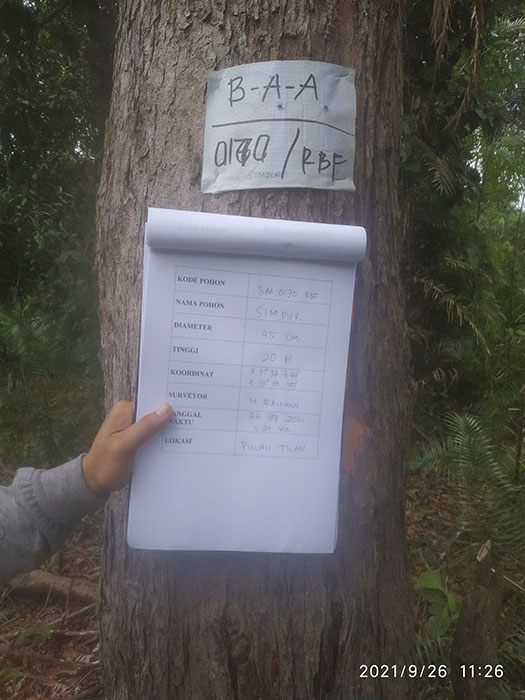 B-A-A
0170/RBF
KODE POHON BAA 0170 RBF
NAMA POHON SIMPUR
DIAMETER 45 CM
TINGGI 20 M
KOORDINAT
SURVEYOR
TANGGAL
WAKTU
LOKASI PULAU TILAN
2021/9/26 11:26